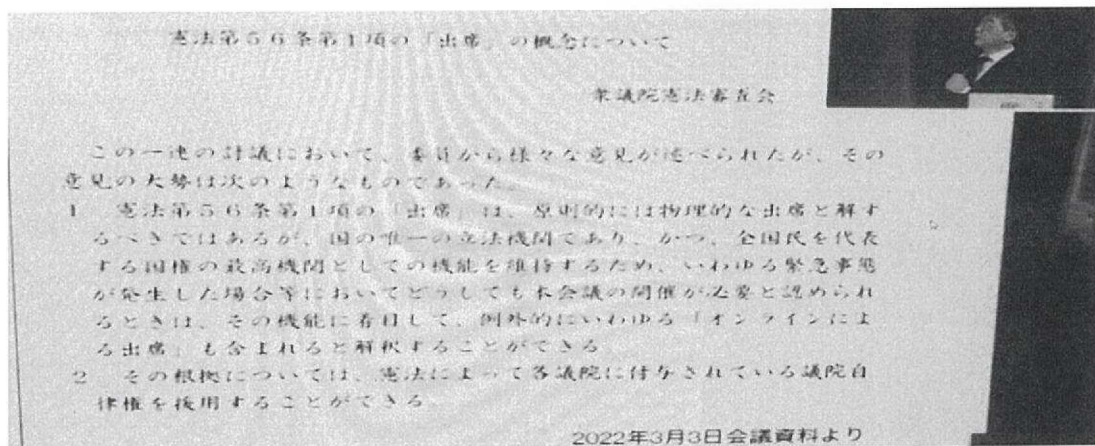 憲法第56条第1項の「出席」の概念について
衆議院憲法審査会
この一連の討議において、委員から様々な意見が述べられたが、その
意見の大勢は次のようなものであった。
1 憲法第56条第1項の「出席」は、原則的には物理的な出席と解す
るべきではあるが、国の唯一の立法機関であり、かつ、全国民を代表
する国権の最高機関としての機能を維持するため、いわゆる緊急事態
が発生した場合等においてどうしても本会議の開催が必要と認められ
るときは、その機能に着目して、例外的にいわゆる「オンラインによ
る出席」も含まれると解釈することができる
2 その根拠については、憲法によって各議院に付与されている議院自
律権を援用することができる
2022年3月3日会議資料より